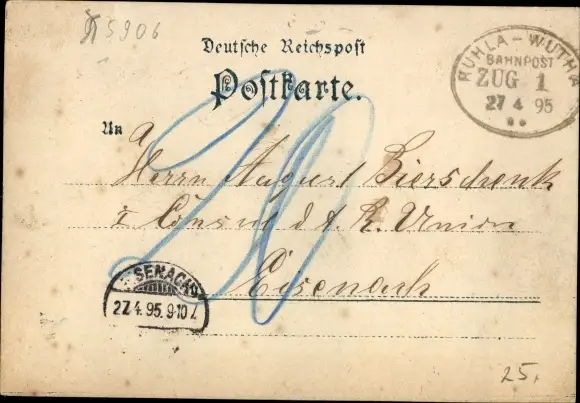 5906
Deutsche Reichspost
Postkarte.
RUHLA - WUTHA
BAHNPOST
ZUG 1
27 4 95
An
Herrn August Bierschenk
z. Consud d. t. R. Union
Eisenach
20
SENACH
27.4.95.9-10
25.